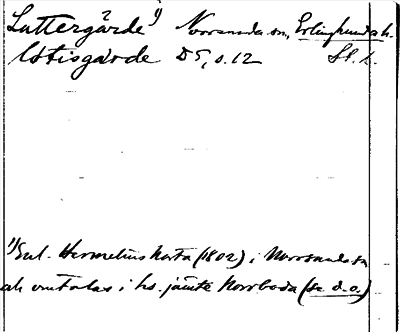 Luttergärde ? 1) Norrsunda sn, Erlinghundra h.
Ustisgärde DS, s. 12 St. l.
1) Enl. Hermelins karta (1802) i Norrsunda sn
och omtalas i hs. jämte Norrboda (se d.o.)